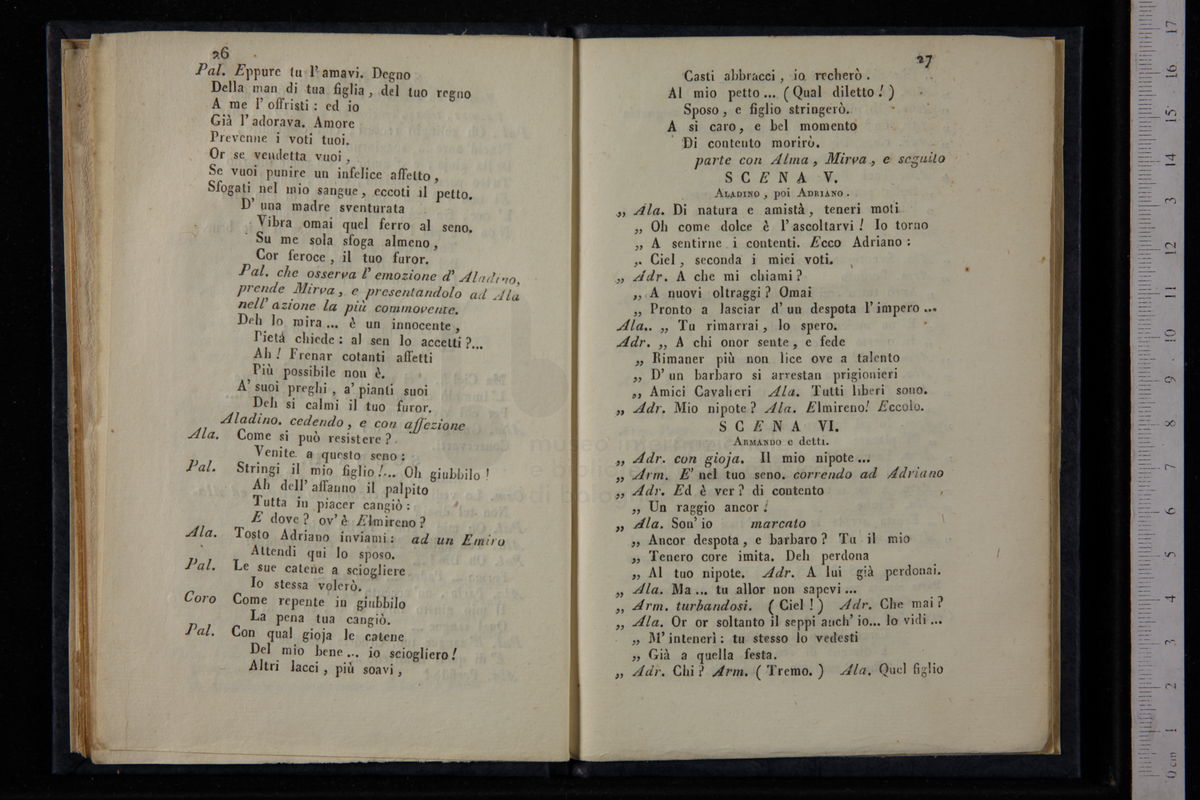 26
Pal. Eppure tu l'amavi. Degno
Della man di tua figlia, del tuo regno
A me l'offristi: ed io
Già l'adorava. Amore
Prevenne i voti tuoi.
Or se vendetta vuoi,
Se vuoi punire un infelice affetto,
Sfogati nel mio sangue, eccoti il petto.
D' una madre sventurata
Vibra omai quel ferro al seno.
Su me sola sfoga almeno,
Cor feroce, il tuo furor.
Pal. che osserva l' emozione d' Aladino,
prende Mirva, e presentandolo ad Ala
nell' azione la più commovente.
Deh lo mira ... è un innocente,
Pietà chiede: al sen lo accetti?...
Ah! Frenar cotanti affetti
Più possibile non è.
A' suoi preghi, a' pianti suoi
Deh si calmi il tuo furor.
Aladino. cedendo, e con affezione
Ala. Come si può resistere?
Venite a questo seno:
Pal. Stringi il mio figlio!... Oh giubbilo!
Ah dell' affanno il palpito
Tutta in piacer cangiò:
E dove? ov' è Elmireno?
Ala. Tosto Adriano inviami: ad un Emiro
Attendi qui lo sposo.
Pal. Le sue catene a sciogliere
Io stessa volerò.
Coro Come repente in giubbilo
La pena tua cangiò.
Pal. Con qual gioja le catene
Del mio bene ... io sciogliero!
Altri lacci, più soavi,
27
Casti abbracci, io recherò.
Al mio petto ... (Qual diletto!)
Sposo, e figlio stringerò.
A si caro, e bel momento
Di contento morirò.
parte con Alma, Mirva, e seguito
SCENA V.
Aladino, poi Adriano.
„ Ala. Di natura e amistà, teneri moti
„ Oh come dolce è l'ascoltarvi! Io torno
„ A sentirne i contenti. Ecco Adriano:
„ Ciel, seconda i miei voti.
„ Adr. A che mi chiami?
„ A nuovi oltraggi? Omai
„ Pronto a lasciar d' un despota l'impero ...
Ala.. „ Tu rimarrai, lo spero.
Adr. „ A chi onor sente, e fede
„ Rimaner più non lice ove a talento
„ D' un barbaro si arrestan prigionieri
„ Amici Cavalieri Ala. Tutti liberi sono.
„ Adr. Mio nipote? Ala. Elmireno! Eccolo.
SCENA VI.
Armando e detti.
„ Adr. con gioja. Il mio nipote ...
„ Arm. E' nel tuo seno. correndo ad Adriano
„ Adr. Ed è ver? di contento
„ Un raggio ancor!
„ Ala. Son' io marcato
„ Ancor despota, e barbaro? Tu il mio
„ Tenero core imita. Deh perdona
„ Al tuo nipote. Adr. A lui già perdonai.
„ Ala. Ma ... tu allor non sapevi ...
„ Arm. turbandosi. (Ciel!) Adr. Che mai?
„ Ala. Or or soltanto il seppi anch' io... lo vidi ...
„ M' intenerì: tu stesso lo vedesti
„ Già a quella festa.
„ Adr. Chi? Arm. (Tremo.) Ala. Quel figlio